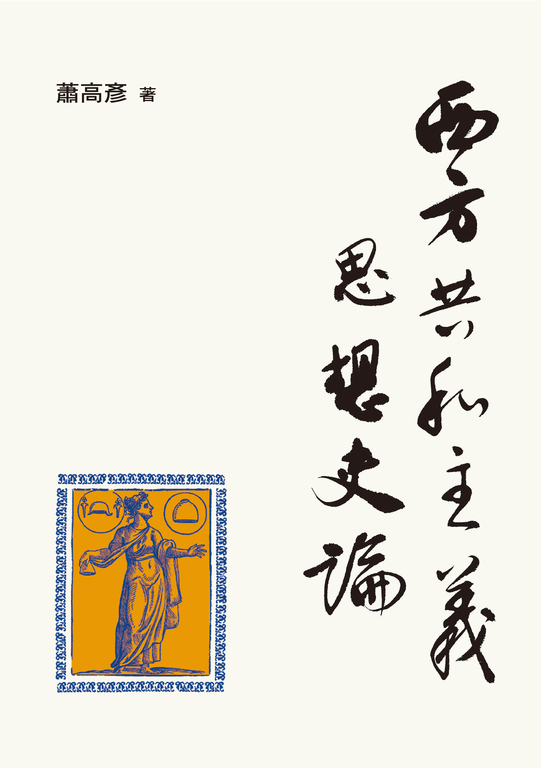 西方共和主義
思想史論
蕭高彥 著